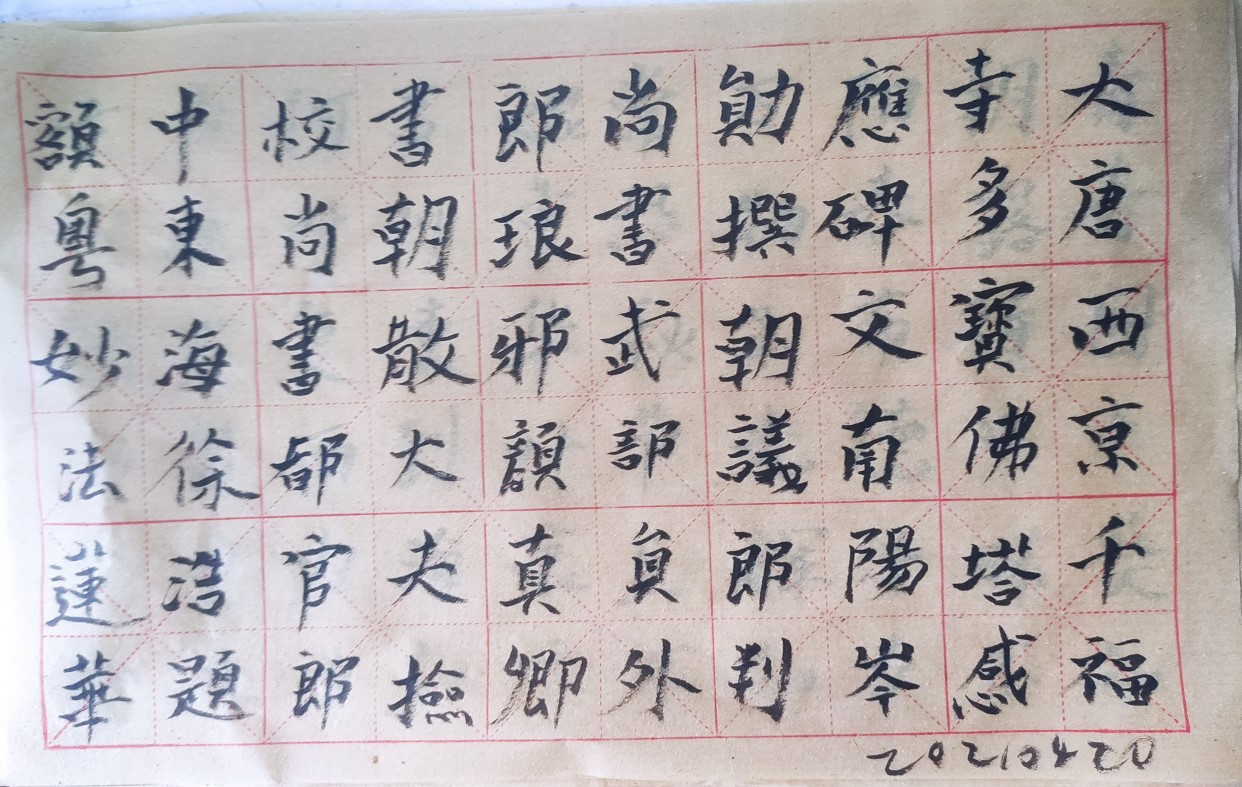 大唐西京千福
寺多寶佛塔感
應碑文南陽岑
勛撰朝議郎判
尚書武部員外
郎琅邪顏真卿
書朝散大夫撿
校尚書都官郎
中東海徐浩題
額粵妙法蓮華
20210420